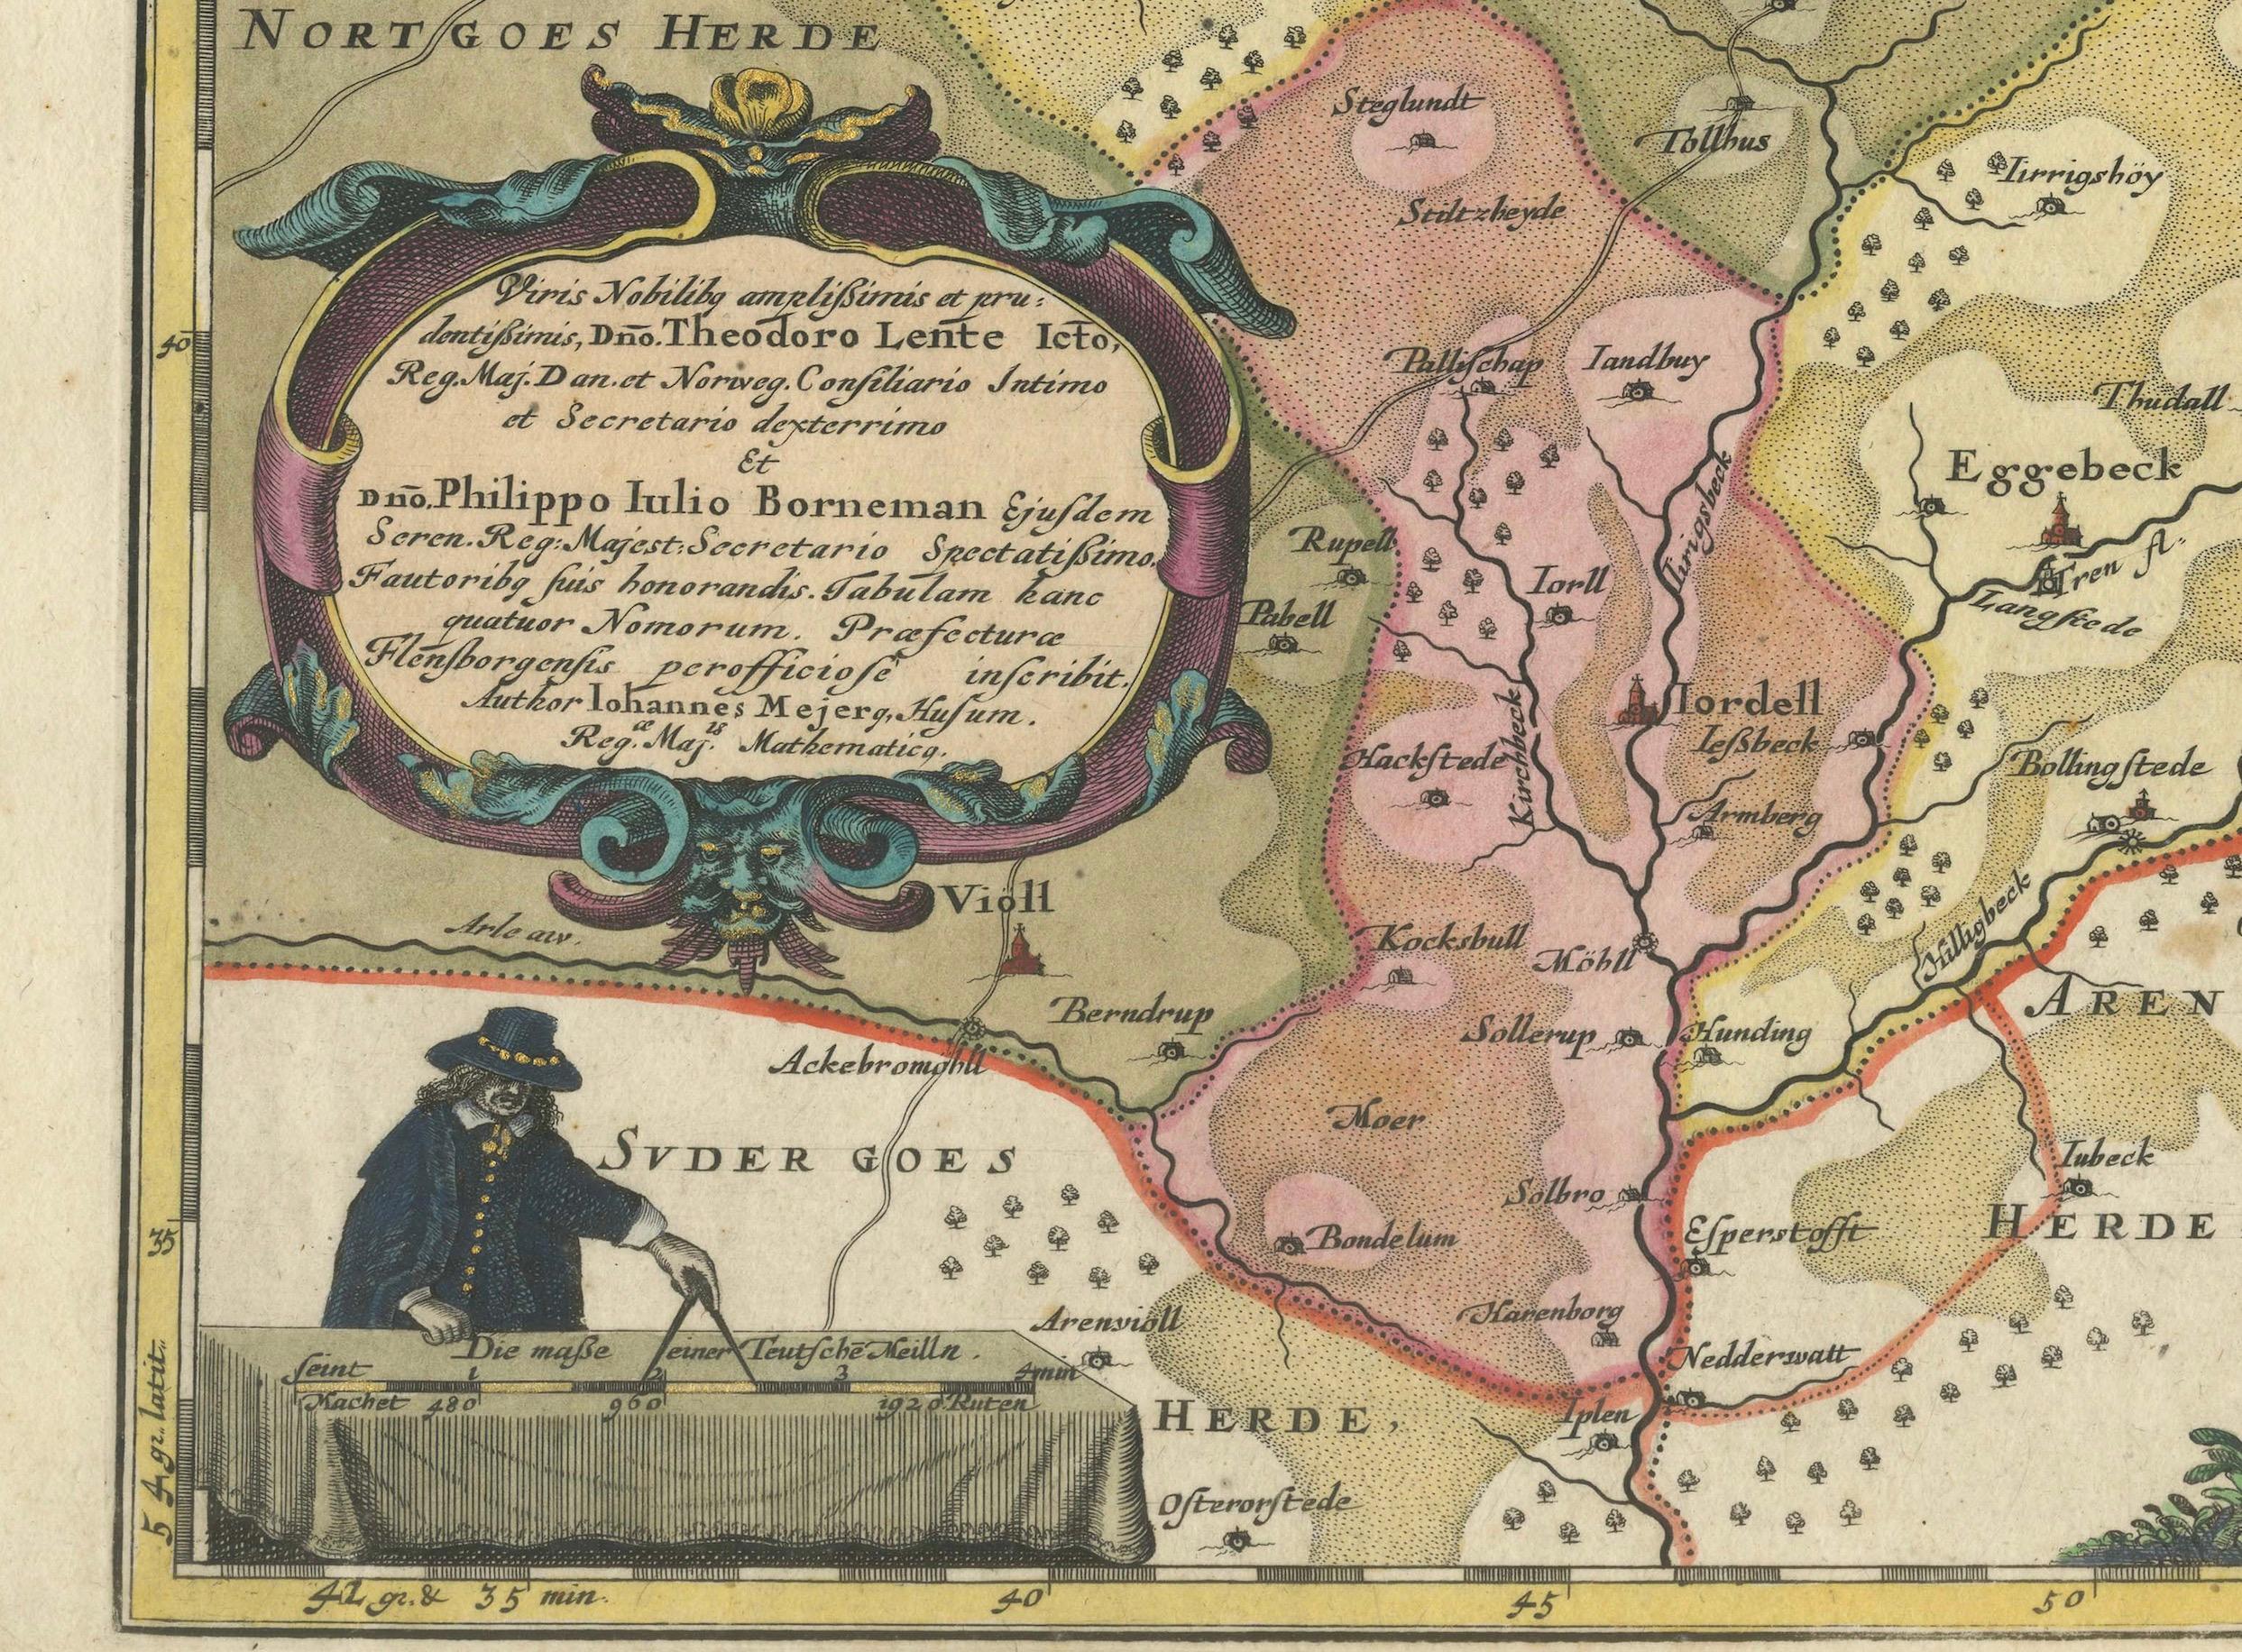 NORTGOES HERDE
Steglundt
Tollhus
Iirrigshöy
Stiltzheyde
Viris Nobilibq ampliſsimis et pru:
dentiſsimis, Dn̄o. Theodoro Lente Icto,
Reg. Maj. Dan. et Norweg. Conſiliario Intimo
et Secretario dexterrimo
Et
Dn̄o. Philippo Iulio Borneman Ejuſdem
Seren. Reg: Majest: Secretario Spectatiſsimo.
Fautoribq ſuis honorandis. Tabulam hanc
quatuor Nomorum. Præfecturæ
Flenſborgenſis perofficiosè inſcribit.
Author Iohannes Mejerq, Huſum.
Reg.æ Maj.is Mathematicq.
40
Palliſchap
Iandbuy
Thudall
Eggebeck
Iirrigsbeck
Rupell
Iorll
Tren fl.
Langſtede
Pabell
Iordell
Ieſsbeck
Hackſtede
Kirchbeck
Bollingſtede
Armberg
Viöll
Arle aw.
Hilligbeck
Kocksbull
Möhll
AREN
Berndrup
Sollerup
Hunding
Ackebromöhll
Moer
SVDER GOES
Iubeck
Solbro
HERDE
Eſperstofft
35
Bondelum
Harenborg
Arenviöll
Nedderwatt
Die maße einer Teutſchē Meilln.
ſeint 1 2 3 4 min
Machet 480 960 1920 Ruten
HERDE,
Iplen
Oſterorſtede
54 gr. latit.
41 gr. & 35 min. 40 45 50